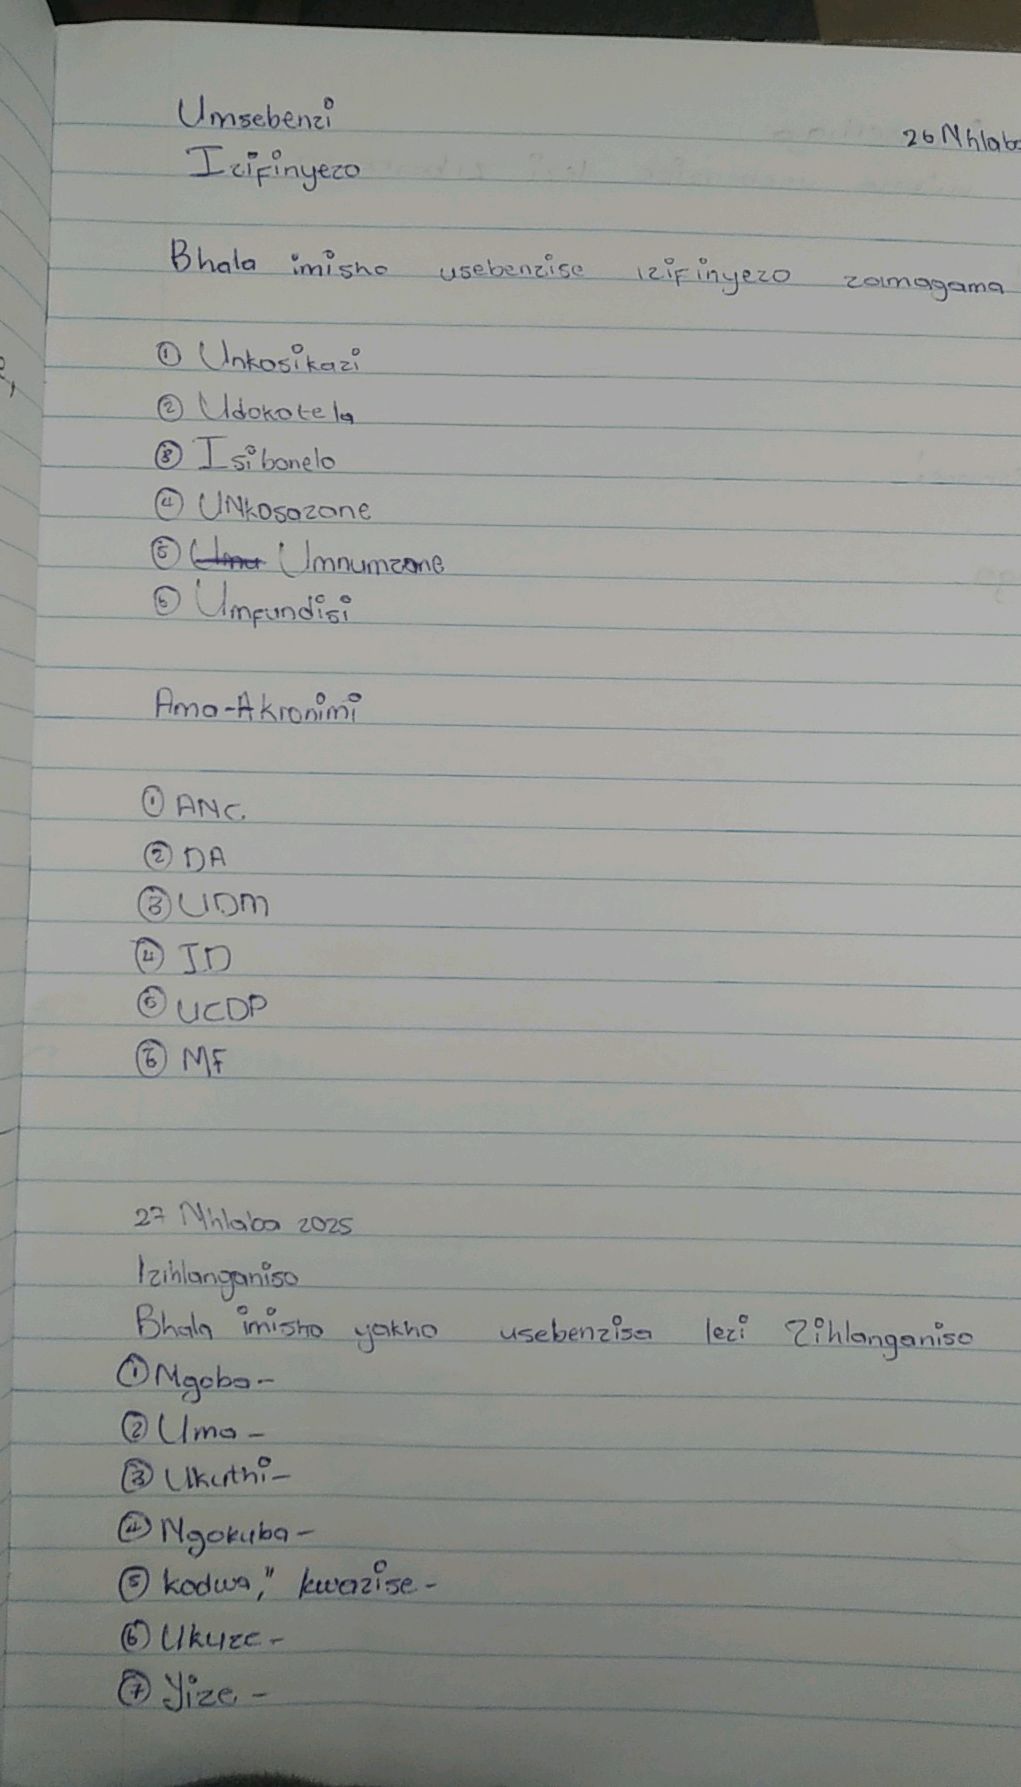 Umsebenzi
26 Nhlaba
Izifinyezo
Bhala imisho usebenzise izifinyezo zamagama
① Unkosikazi
② Udokotela
③ Isibonelo
④ UNkosazane
⑤ Umnumzane
⑥ Umfundisi
Ama-Akronimi
① ANC.
② DA
③ UDM
④ ID
⑤ UCDP
⑥ MF
27 Nhlaba 2025
Izihlanganiso
Bhala imisho yakho usebenzisa lezi Zihlanganiso
① Ngoba-
② Uma-
③ Ukuthi-
④ Ngokuba-
⑤ kodwa," kwazise-
⑥ Ukuze-
⑦ Yize-